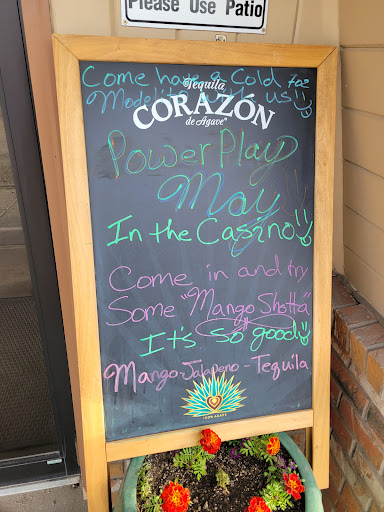 Please Use Patio
Come have a Cold 7oz
Modelito with us!!
Tequila
CORAZÓN
de Agave®
Power Play
May
In the Casino!!
Come in and try
Some "Mango Shotta"
It's so good!!
Mango-Jalapeno-Tequila
100% AGAVE